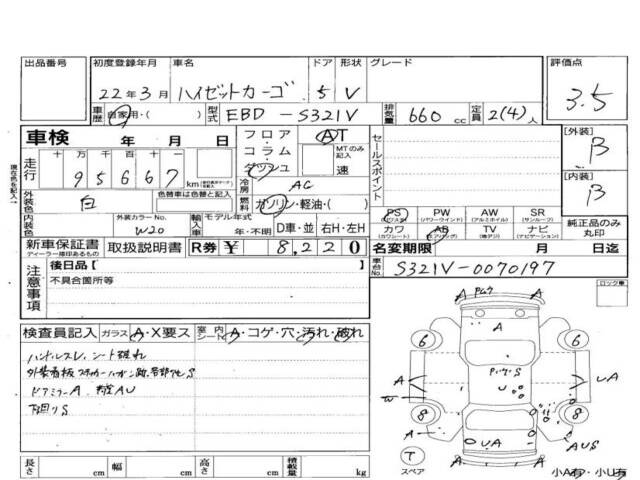 出品番号
初度登録年月
22年3月
車名
ハイゼットカーゴ
ドア
5
形状
V
グレード
評価点
3.5
車歴
自家用・( )
型式
EBD-S321V
排気量
660 cc
定員
2(4)人
車検 年 月 日
走行
十 万 千 百 十 一
95667 km
フロア・コラム・ダッシュ
AT
MTのみ記入
速
冷房
AC
燃料
ガソリン・軽油・( )
セールスポイント
[外装]
B
[内装]
B
現在色を記入→
外装色
白
色替車は色替と記入
内装色
外装カラーNo.
W20
輸入車
モデル年式
年・不明
D車・並
右H・左H
PS (パワステ)
PW (パワーウインド)
AW (アルミホイル)
SR (サンルーフ)
カワ (カワシート)
AB (エアバッグ)
TV (地デジ)
ナビ (ナビゲーション)
純正品のみ丸印
新車保証書
ディーラー捺印あるもの
取扱説明書
R券 ¥ 8,220
名変期限 月 日迄
注意事項
後日品[ ]
不具合箇所等
車台No.
S321V-0070197
ロック車
検査員記入
ガラス A・X要ス
室内シート A・コゲ・穴・汚れ・破れ
ハンドルスレ シート破れ
ドアミラーA
下廻りS
長さ cm
幅 cm
高さ cm
積載量 kg
A
6
6
A
A
UA
W
8
8
A
UA
AUS
T
スペア
A
A
小A有・小U有